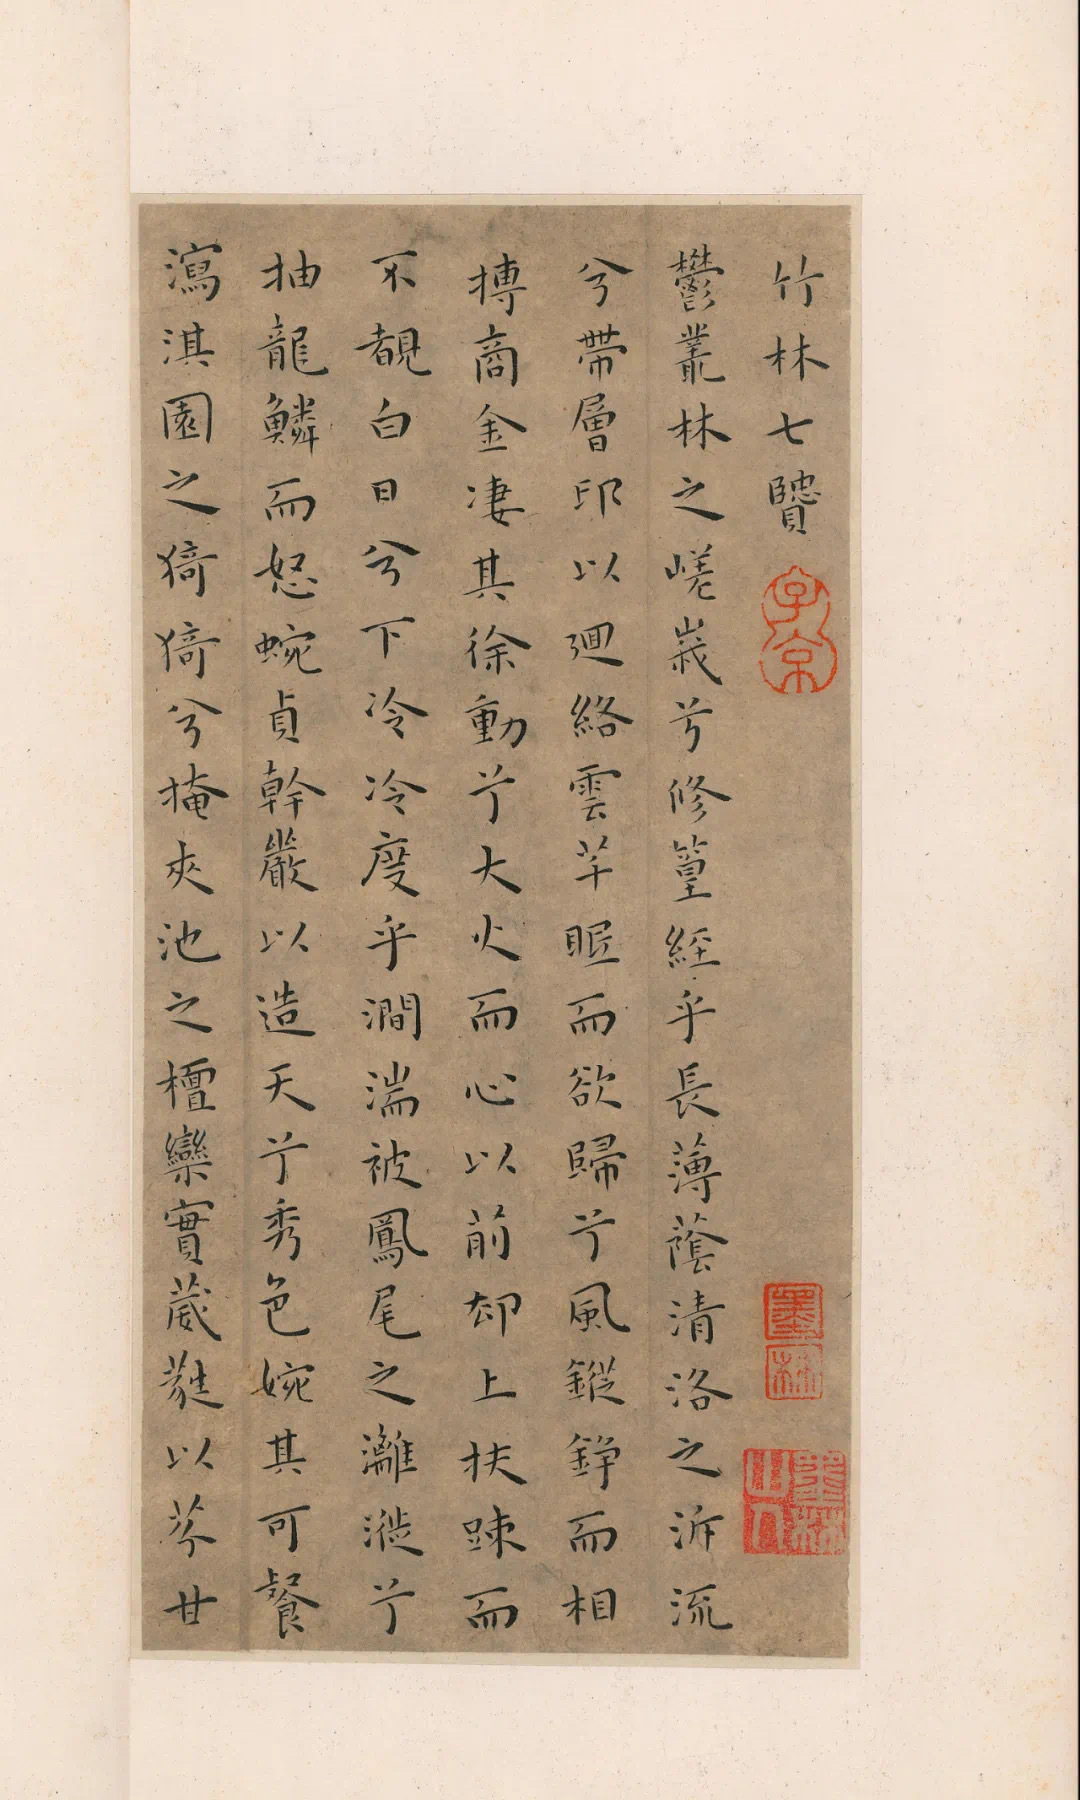 竹林七贒
鬱叢林之嵯峩兮修篁經乎長薄蔭清洛之泝流
兮帶層邙以廻絡雲芊眠而欲歸兮風鏦錚而相
摶商金凄其徐動兮大火而心以前却上扶踈而
不覩白日兮下冷冷度乎澗湍被鳳尾之灕漇兮
抽龍鱗而怒蜿貞幹嚴以造天兮秀色婉其可餐
瀉淇園之猗猗兮掩夾池之檀欒實葳蕤以芬甘
子京
墨林
墨林山人